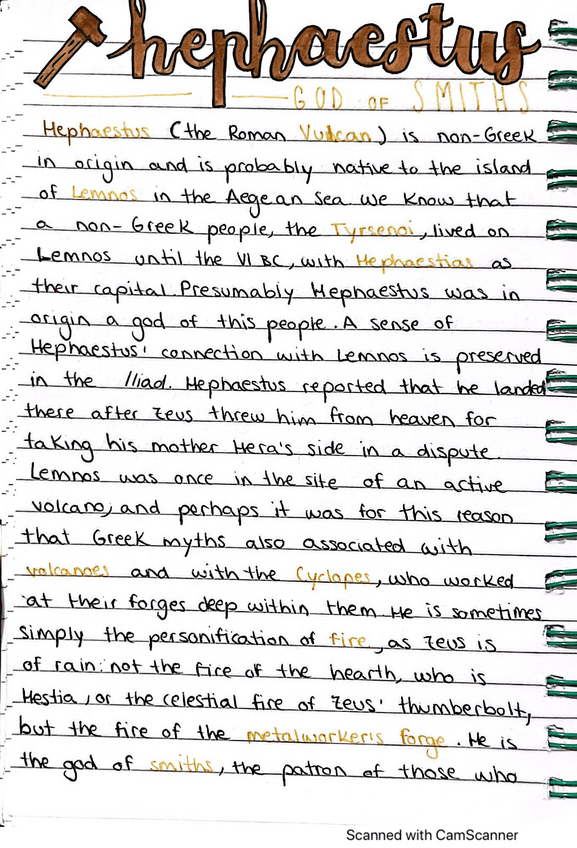 hephaestus
GOD OF SMITHS
Hephaestus (the Roman Vulcan) is non-Greek
in origin and is probably native to the island
of Lemnos in the Aegean Sea. we know that
a non-Greek people, the Tyrsenoi, lived on
Lemnos until the VI BC, with Hephaestias as
their capital. Presumably Hephaestus was in
origin a god of this people. A sense of
Hephaestus' connection with Lemnos is preserved
in the Iliad. Hephaestus reported that he landed
there after Zeus threw him from heaven for
taking his mother Hera's side in a dispute.
Lemnos was once in the site of an active
volcano, and perhaps it was for this reason
that Greek myths also associated with
volcanoes and with the Cyclopes, who worked
at their forges deep within them. He is sometimes
simply the personification of fire, as Zeus is
of rain: not the fire of the hearth, who is
Hestia, or the celestial fire of Zeus' thumberbolt,
but the fire of the metalworker's forge. He is
the god of smiths, the patron of those who
Scanned with CamScanner